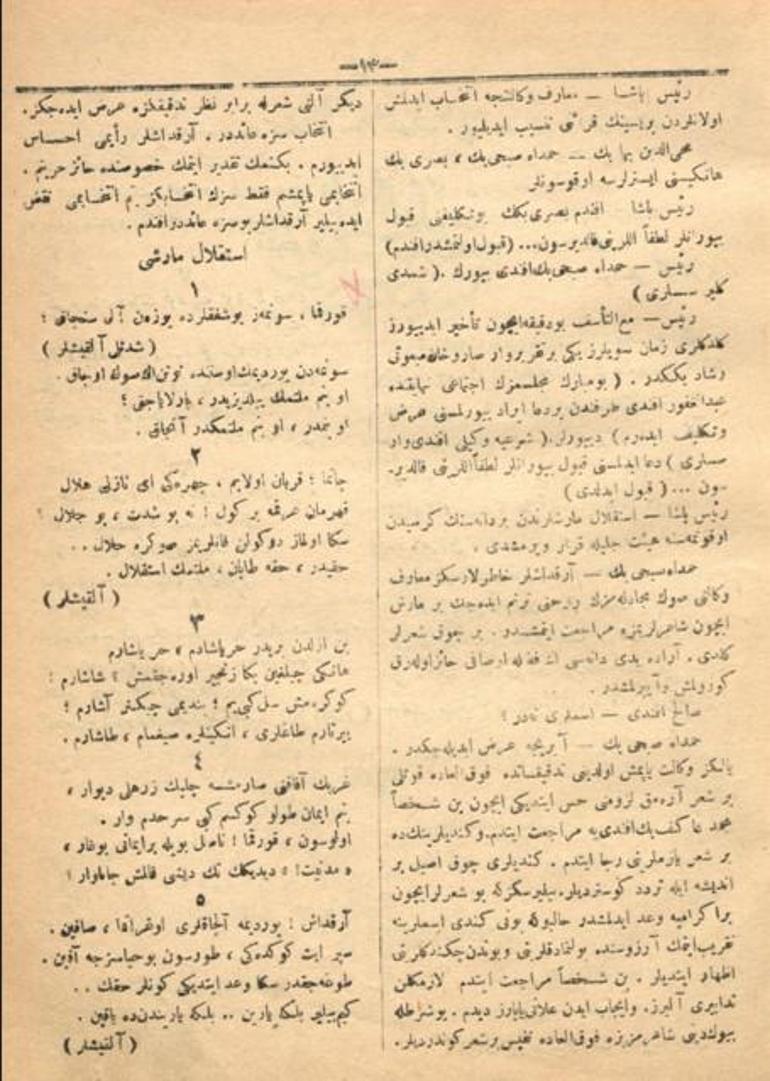 —١٣—
رئیس پاشا — معارف وکالتنجه انتخاب ایدلمش
اولانلردن بریسینك قرائتی تنسیب ایدیلیور .
محی‌الدین بها بك — حمداله صبحی بك ، بصری بك
هانکیسنی ایسترلرسه اوقوسونلر
رئیس پاشا افندم بصری بکك بو تکلیفنی قبول
بیورانلر لطفاً اللرینی قالدیرسون... (قبول اولنمشدر افندم)
رئیس — حمداله صبحی بك افندی بیورك .( شمدی
کلیر سسلری )
رئیس — مع التأسف بو دقیقه ایچون تأخیر ایدییورز
کلدکلری زمان سویلرز یکی بر تقریر وار صاروخان مبعوثی
رشاد بککدر . ( بو مبارك مجلسمزك اجتماعی
عبدالغفور افندی طرفندن بر دعا ایراد بیورلمسنی عرض
و تکلیف ایدەرم ) دییورلر.( شرعیه وکیلی افندی وار
صداری ) دعا ایدلمسنی قبول بیورانلر لطفاً اللرینی قالدیر-
سون ... ( قبول ایدلدی )
رئیس پاشا — استقلال مارشلرندن بر دانه‌سنك کرسیدن
اوقونمه‌سنه هیئت جلیله قرار ویرمشدی .
حمداله صبحی بك — آرقداشلر خاطرلارسکز معارف
وکالتی صوك مجادله‌مزك روحنی ترنم ایده‌جك بر مارش
ایچون شاعرلریمزه مراجعت ایتمشدی . بر چوق شعرلر
کلدی . آراده یدی دانه‌سی اك فضله اوصافی حائز اوله‌رق
کورولمش و آیرلمشدر .
صالح افندی — اسملری نه‌در ؟
حمداله صبحی بك — آیریجه عرض ایدیله‌جکدر .
یالکز وکالت یاپمش اولدیغی تدقیقاتده فوق‌العاده قوتلی
بر شعر آرامق لزومنی حس ایتدیکی ایچون بن شخصاً
محمد عاکف بك افندی‌یه مراجعت ایتدم. و کندیلرینك ده
بر شعر یازملرینی رجا ایتدم . کندیلری چوق اصیل بر
اندیشه ایله تردد کوستردیلر. بیلیرسکز که بو شعرلر ایچون
بر اکرامیه وعد ایدلمشدر حالبوکه بونی کندی اسملرینه
تقریب ایتمك آرزوسنده بولنمادقلرینی و بوندن چکندکلرینی
اظهار ایتدیلر . بن شخصاً مراجعت ایتدم لازمکلن
تدابیری آلیرز. و ایجاب ایدن علانی یاپارز دیدم . بو شرطله
بیوك دینی شاعرمز بزه فوق‌العاده نفیس بر شعر کوندردیلر.
دیکر آلتی شعرله برابر نظر تدقیقکزه عرض ایده‌جکز .
انتخاب سزه عائددر . آرقداشلر رأیمی احساس
ایدییورم . بکنمك تقدیر ایتمك خصوصنده حائز حریتم .
انتخابمی یاپمشم فقط سزك انتخابکز بنم انتخابمی نقض
ایده‌بیلیر آرقداشلر بو سزه عائددر افندم .
استقلال مارشی
١
قورقما ، سونمەز بو شفقلرده یوزەن آل سنجاق ؛
( شدتلی آلقیشلر )
سونمەدن یوردیمك اوستنده توتن اك صوك اوجاق .
او بنم ملتمك ییلدیزیدر ، پارلایاجق ؛
او بنمدر ، او بنم ملتمکدر آنجاق .
٢
چاتما ؛ قربان اولایم ، چهره‌کی ای نازلی هلال
قهرمان عرقمه بر کول ! نه بو شدت ، بو جلال ؟
سکا اولماز دوکولن قانلریمز صوکره حلال ..
حقیدر ، حقه طاپان ، ملتمك استقلال .
( آلقیشلر )
٣
بن ازلدن بریدر حر یاشادم ، حر یاشارم
هانکی چیلغین بکا زنجیر اوره‌جقمش ؟ شاشارم !
کوکره‌مش سل کبی‌یم ؛ بندیمی چیکنر آشارم ؛
ییرتارم طاغلری ، انکینلره صیغمام ، طاشارم .
٤
غربك آفاقنی صارمشسه چلیك زرهلی دیوار ،
بنم ایمان طولو کوکسم کبی سرحدم وار .
اولوسون ، قورقما ! ناصل بویله بر ایمانی بوغار ،
« مدنیت! » دیدیکك تك دیشی قالمش جاناوار ؟
٥
آرقداش ! یوردیمه آلچاقلری اوغراتما ، صاقین .
سپر ایت کوکده‌کی ، طورسون بو حیاسزجه آقین .
طوغه‌جقدر سکا وعد ایتدیکی کونلر حقك ..
کیم بیلیر بلکه یارین .. بلکه یاریندن ده یاقین .
( آلقیشلر )